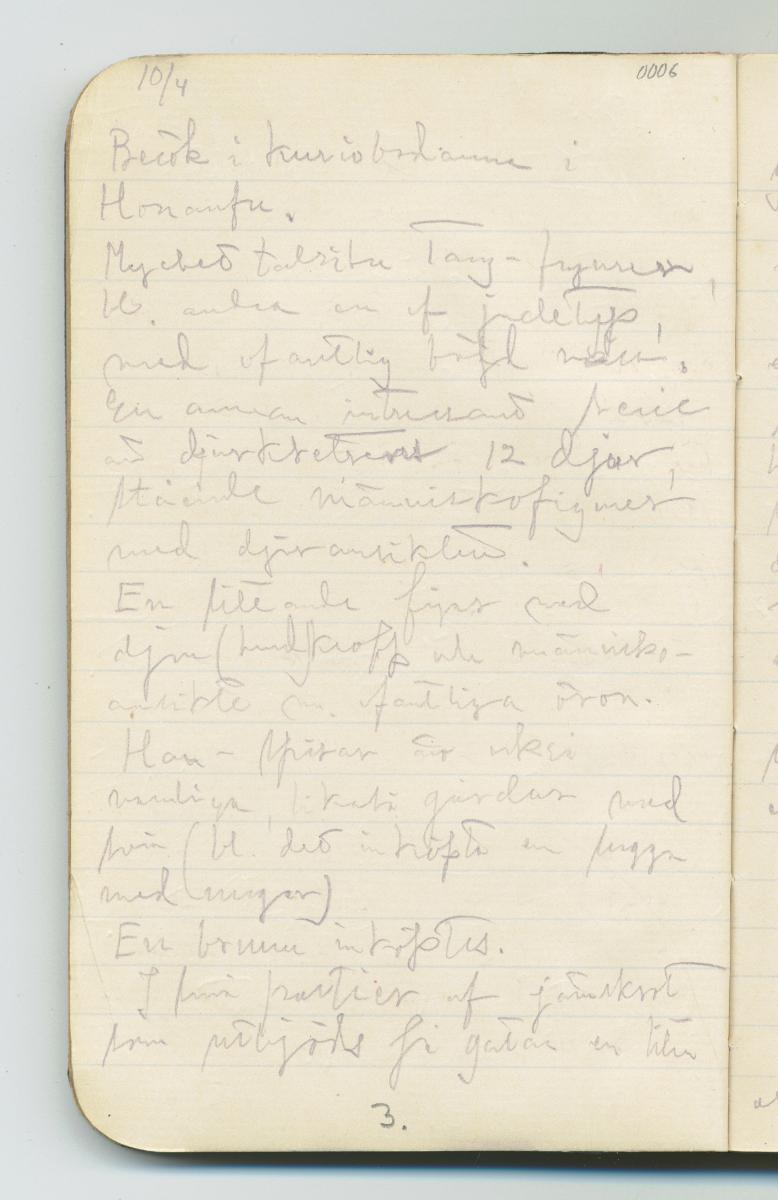 10/4
0006
Besök i kuriobodarna i
Honanfu.
Mycket talrika Tang-figurer,
bl. andra en af judetyp,
med ofantlig böjd näsa.
En annan intressant serie
12 djur,
stående människofigurer
med djuransikten.
En sittande figur med
djur(hund)kropp och människo-
ansikte m. ofantliga öron.
Han-spisar äro icke
vanliga, likaså gårdar med
svin (bl. det inköpta en sugga
med ungar)
En brunn inköptes.
I små partier af järnskrot
som utbjöds på gatan en liten
3.